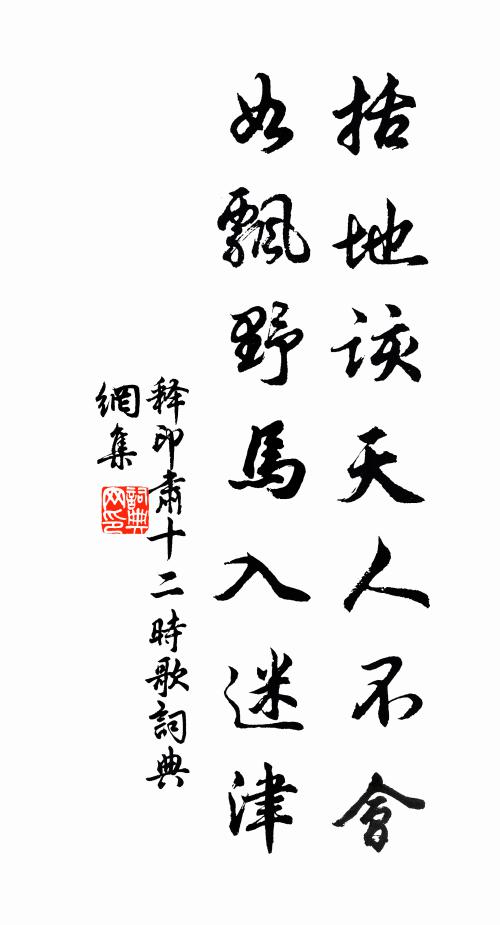 括地該天人不會
如飄野馬入迷津
释印肅十二時歌詞典
網集
詞典網印